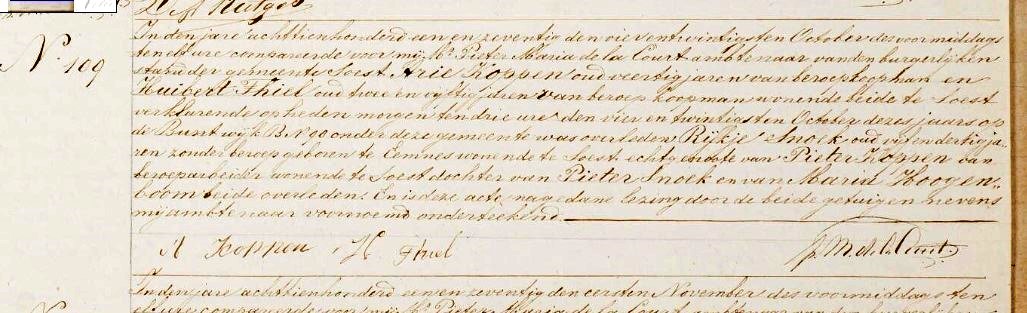 In den jare achttienhonderd een en zeventig den vier en twintigsten October des voormiddags
ten elf ure compareerde voor mij Mr. Pieter Maria de la Court ambtenaar van den burgerlijken
stand der gemeente Soest Arie Koppen oud veertig jaren van beroep koopman en
Huibert Thiel oud twee en vijftig jaren van beroep koopman wonende beide te Soest
verklarende op heden morgen ten drie ure den vier en twintigsten October dezes jaars op
No. 109 de Bunt wijk B No 90 onder deze gemeente was overleden Rijkje Snoek oud vijf en dertig ja-
ren zonder beroep geboren te Eemnes wonende te Soest echtgenoote van Pieter Koppen van
beroep arbeider wonende te Soest dochter van Pieter Snoek en van Maria Hoogen-
boom beide overleden. En is deze acte na gedane lezing door de beide getuigen nevens
mij ambtenaar voornoemd onderteekend.
A Koppen H. Thiel P. M. de la Court
In den jare achttienhonderd een en zeventig den eersten November des voormiddags ten
elf ure compareerde voor mij Mr. Pieter Maria de la Court ambtenaar van den